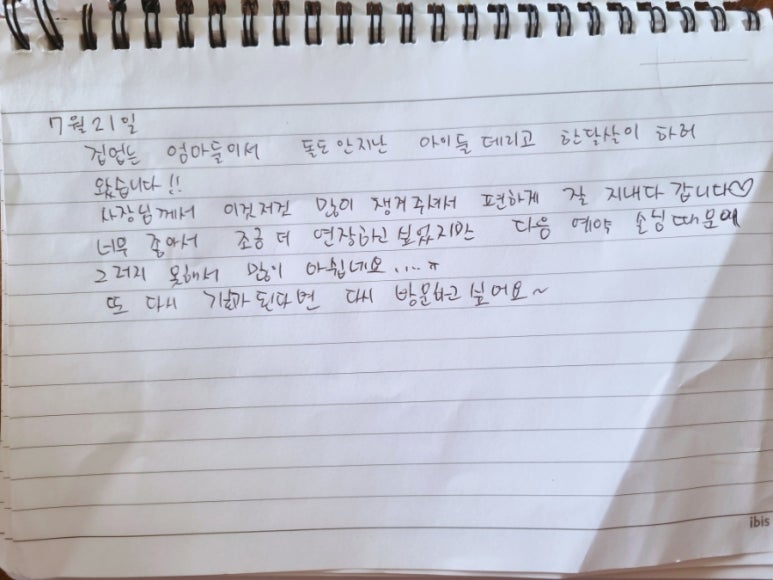 7월21일
겁없는 엄마들이서 돌도안지난 아이들 데리고 한달살이 하러
왔습니다!!
사장님께서 이것저것 많이 챙겨주셔서 편하게 잘 지내다 갑니다♡
너무 좋아서 조금 더 연장하고 싶었지만 다음 예약 손님때문에
그러지 못해서 많이 아쉽네요....ㅠ
또 다시 기회가 된다면 다시 방문하고싶어요~
ibis